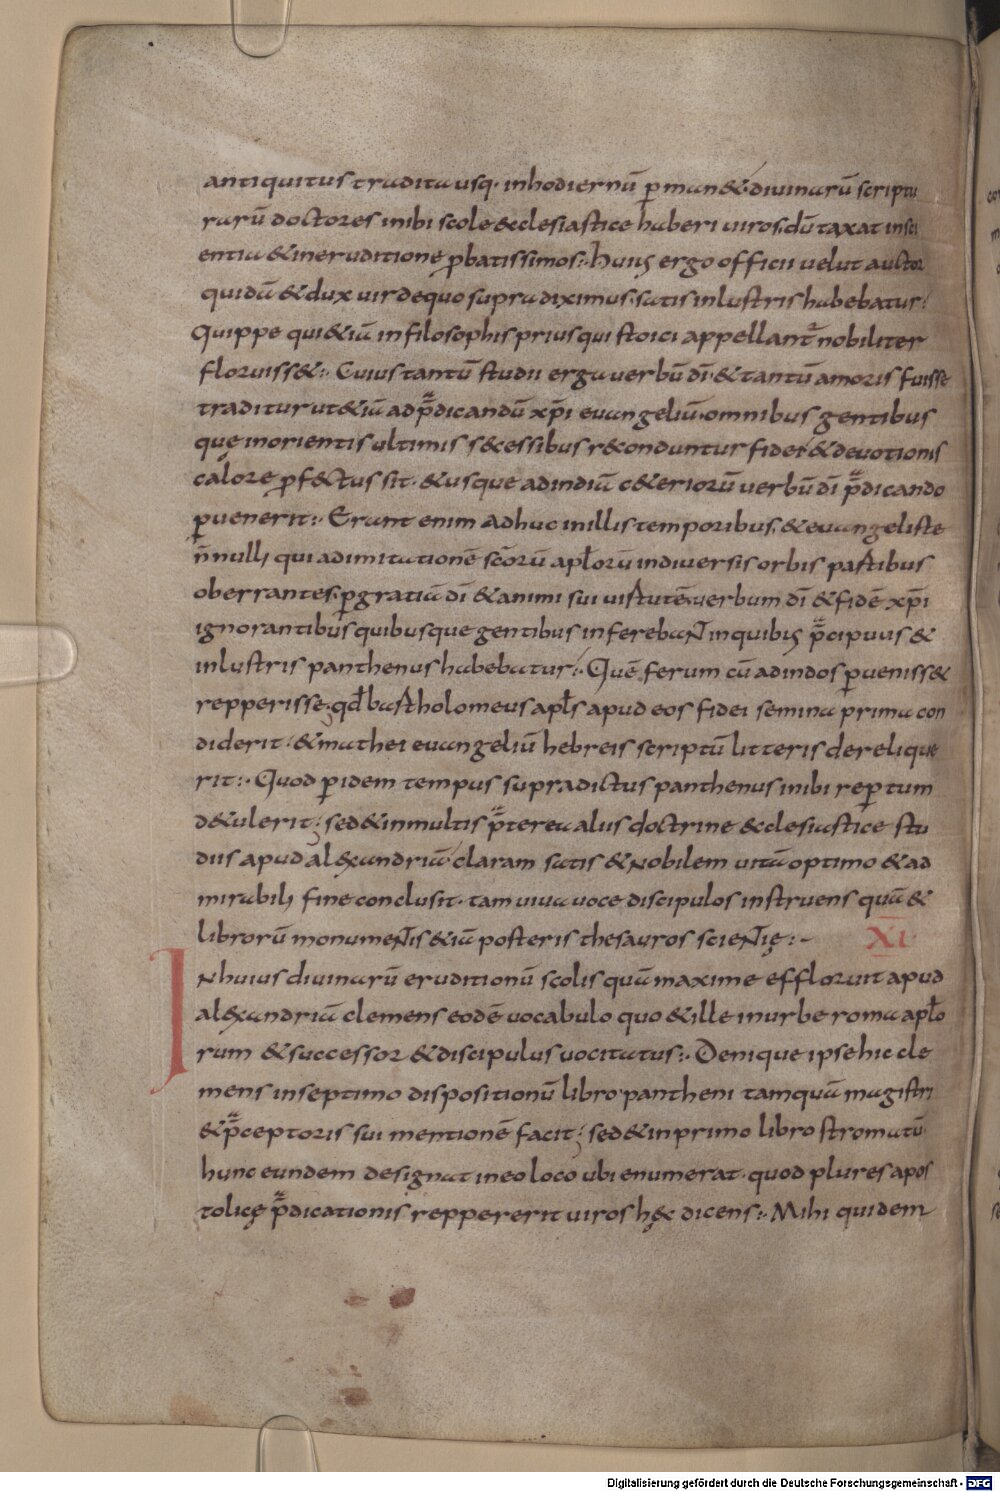 antiquitus tradita usq· inhodiernū p̄man&· diuinarū scriptu
rarū doctores inibi scole &clesiastice haberi uiros, dū taxat insci
entia & ineruditione ꝓbatissimos:· huiꝰ ergo officii uelut auctor
quidā & dux uir dequo supra diximus, satis inlustris habebatur:
Quippe qui &iā infilosophis prius qui stoici appellant̄ nobiliter
floruiss&:· Cuius tantū studii erga uerbū dī· & tantū amoris fuisse
traditur ut &iā adp̄dicandū xp̄i euangeliū· omnibus gentibus
que inorientis ultimis s&essibus r&onduntur fidei & deuotionis
calore ꝓf&ctus sit· & usque adindiā c&eriorū uerbū dī p̄dicando
ꝑuenerit:· Erant enim adhuc inillis temporibus, & euangeliste
n̄nulli qui adimitationē sc̄orū apl̄orū indiuersis orbis partibus
oberrantes, ꝑgratiā dī & animi sui uirtutē uerbum dī & fidē xp̄i
ignorantibus quibusque gentibus inferebant inquibꝰ p̄cipuus &
inlustris panthenus habebatur:· Quē ferum cū adindos ꝑueniss&
repperisse, qd̄ bartholomeus apl̄s apud eos fidei semina prima con
diderit· & mathei euangeliū hebreis scriptū litteris derelique
rit:· Quod ꝑidem tempus supradictus panthenus inibi repertum
d&ulerit; sed & inmultis p̄terea aliis doctrine &clesiastice stu
diis apud alexandriā claram satis & nobilem uitā optimo & ad
mirabili fine conclusit· tam uiua uoce discipulos instruens quā &
librorū monumentis &iā posteris thesauros scientię:- XI
INhuius diuinarū eruditionū scolis quā maxime effloruit apud
alexandriā clemens eodē uocabulo quo & ille inurbe roma apl̄o
rum & successor & discipulus uocitatus:· Denique ipse hic cle
mens inseptimo dispositionū libro pantheni tamquā magistri
& p̄ceptoris sui mentionē facit; sed & inprimo libro stromatū·
hunc eundem designat ineo loco ubi enumerat· quod plures apos
tolicę p̄dicationis reppererit uiros hęc dicens:· Mihi quidem
Digitalisierung gefördert durch die Deutsche Forschungsgemeinschaft - DFG